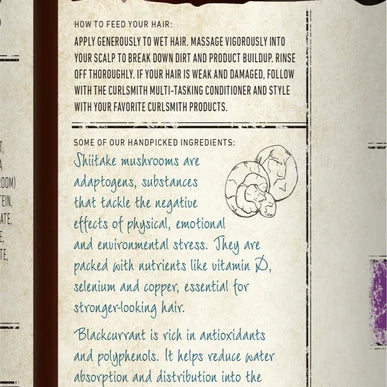 HOW TO FEED YOUR HAIR:
APPLY GENEROUSLY TO WET HAIR. MASSAGE VIGOROUSLY INTO
YOUR SCALP TO BREAK DOWN DIRT AND PRODUCT BUILDUP. RINSE
OFF THOROUGHLY. IF YOUR HAIR IS WEAK AND DAMAGED, FOLLOW
WITH THE CURLSMITH MULTI-TASKING CONDITIONER AND STYLE
WITH YOUR FAVORITE CURLSMITH PRODUCTS.
SOME OF OUR HANDPICKED INGREDIENTS:
Shiitake mushrooms are
adaptogens, substances
that tackle the negative
effects of physical, emotional
and environmental stress. They are
packed with nutrients like vitamin D,
selenium and copper, essential for
stronger-looking hair.
Blackcurrant is rich in antioxidants
and polyphenols. It helps reduce water
absorption and distribution into the